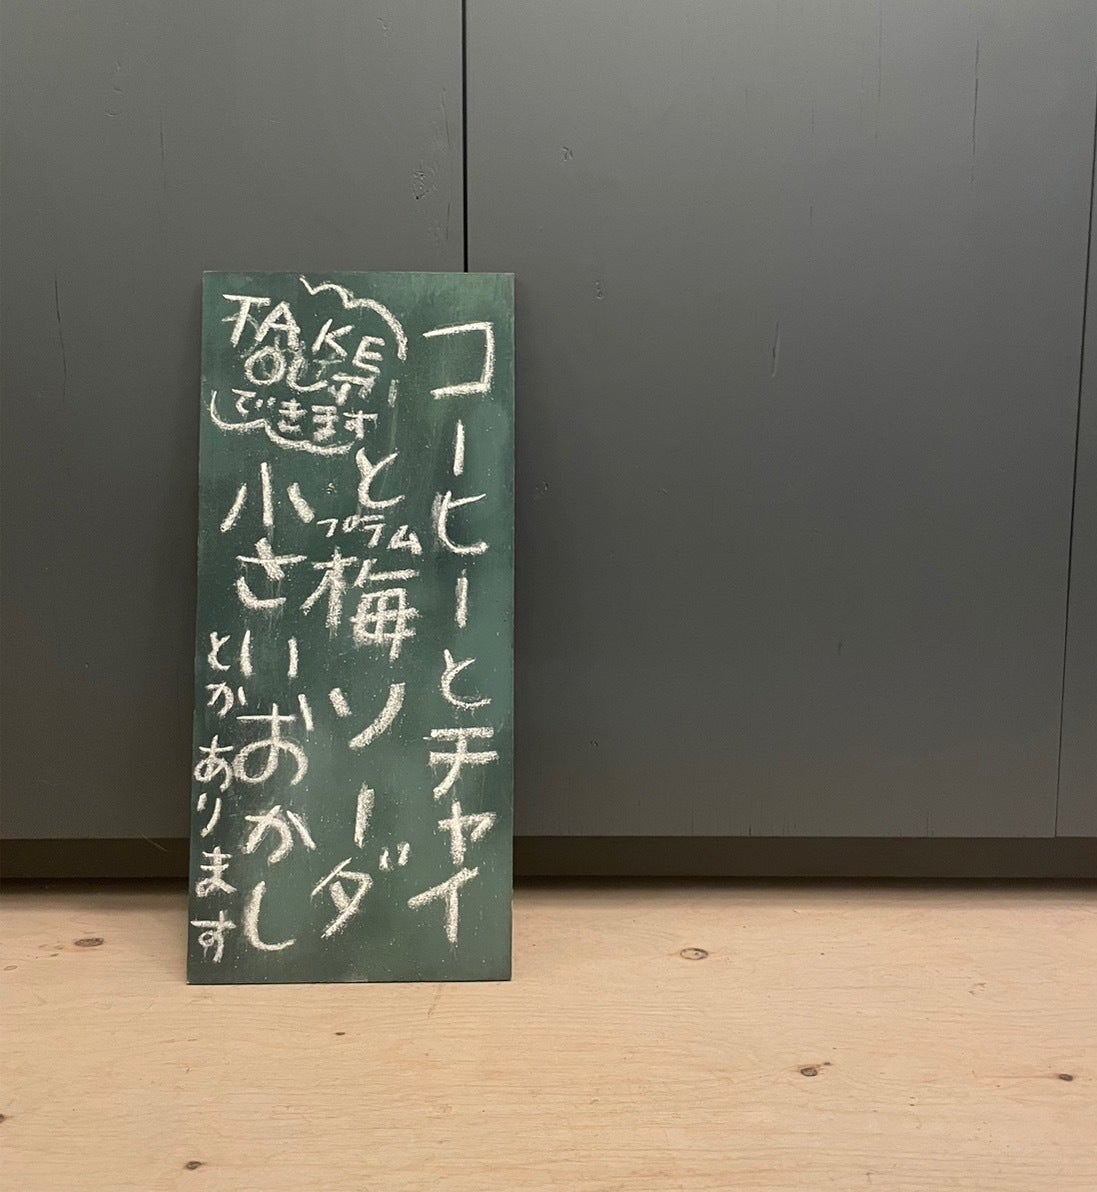 コーヒーとチャイ
と梅ソーダ
プラム
小さいおかし
とかあります
TAKE
OUT
できます